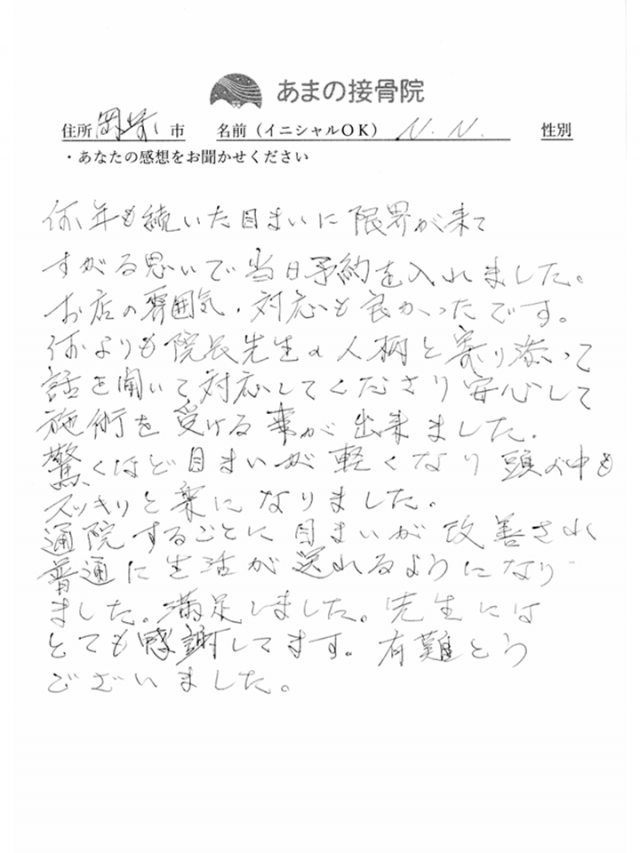 あまの接骨院
住所 岡崎 市 名前（イニシャルOK） N.N. 性別
・あなたの感想をお聞かせください
何年も続いた目まいに限界が来て
すがる思いで当日予約を入れました。
お店の雰囲気・対応も良かったです。
何よりも院長先生の人柄と寄り添って
話を聞いて対応してくださり安心して
施術を受ける事が出来ました。
驚くほど目まいが軽くなり頭の中も
スッキリと楽になりました。
通院するごとに目まいが改善され
普通に生活が送れるようになり
ました。満足しました。先生には
とても感謝してます。有難とう
ございました。